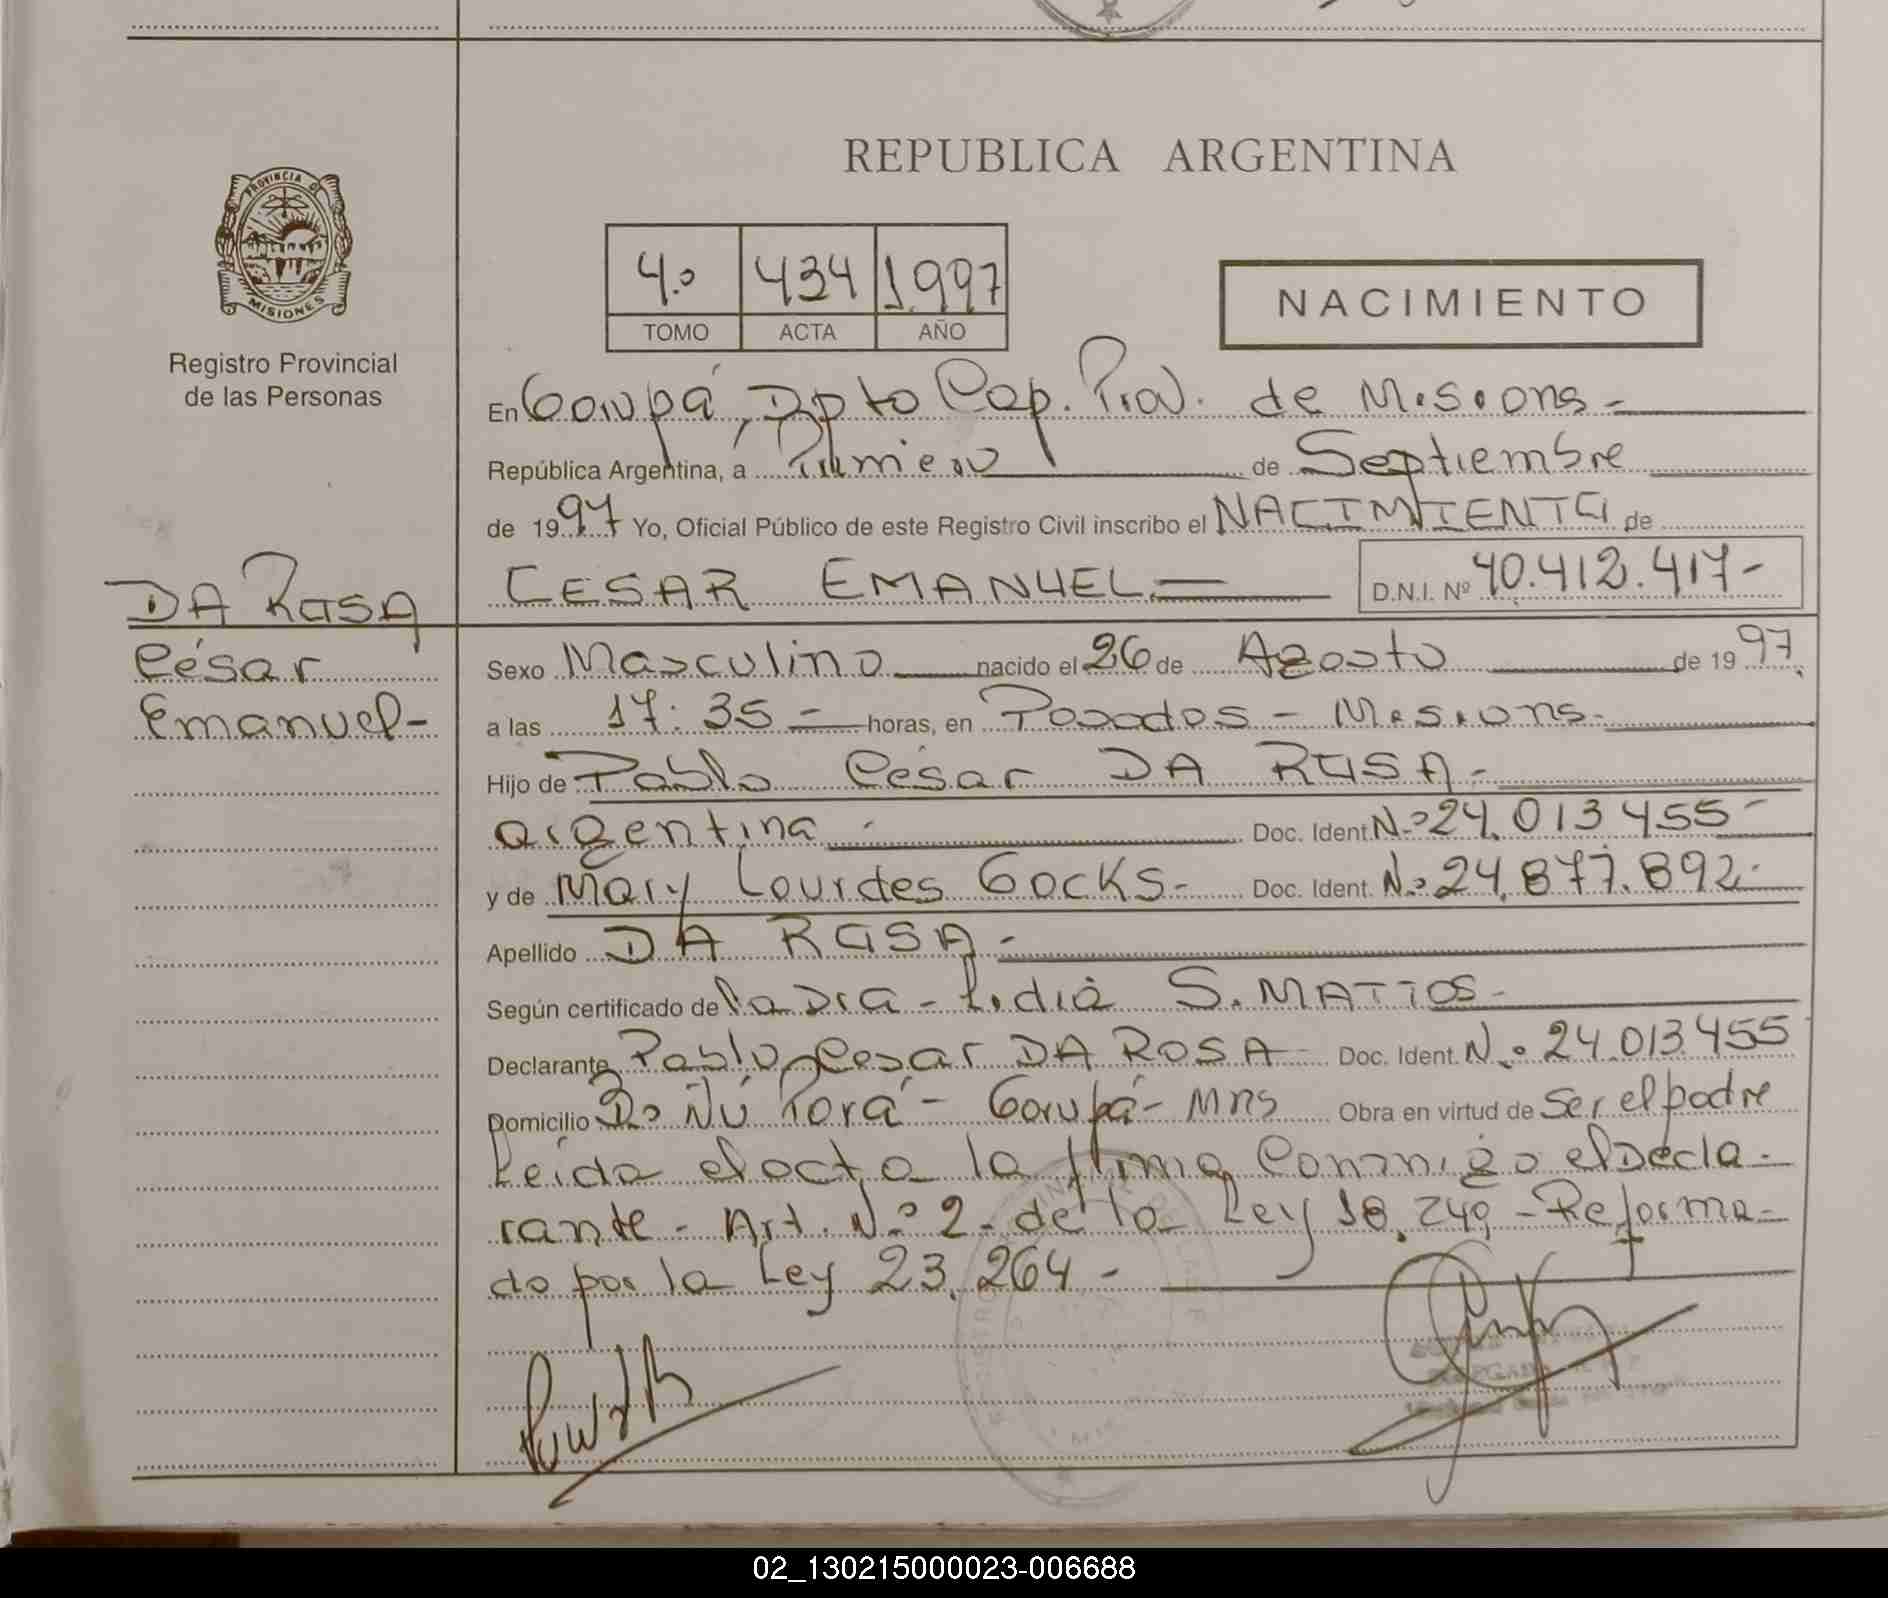 REPUBLICA ARGENTINA
PROVINCIA D
MISIONES
Registro Provincial
de las Personas
4.º 434 1.997
TOMO ACTA AÑO
NACIMIENTO
En Garupá, Dpto Cap. Prov. de Misiones -
República Argentina, a Primero de Septiembre
de 1997 Yo, Oficial Público de este Registro Civil inscribo el NACIMIENTO de
CESAR EMANUEL D.N.I. Nº 40.412.417-
DA ROSA
César
Emanuel-
Sexo Masculino nacido el 26 de Agosto de 1997.
a las 17:35 - horas, en Posadas - Misiones.
Hijo de Pablo César DA ROSA -
argentina - Doc. Ident. N.º 24.013455-
y de Mary Lourdes Gocks- Doc. Ident. N.º 24.877.892-
Apellido DA ROSA -
Según certificado de la Dra - Lidia S. MATTOS -
Declarante Pablo Cesar DA ROSA Doc. Ident. N.º 24.013455
Domicilio Bº Ñú Porá - Garupá - Mnes Obra en virtud de Ser el padre
Leída el acta la firma Conmigo el Decla-
rante - Art. N.º 2 - de la Ley 18.249 - Reforma-
do por la Ley 23.264 -
02_130215000023-006688